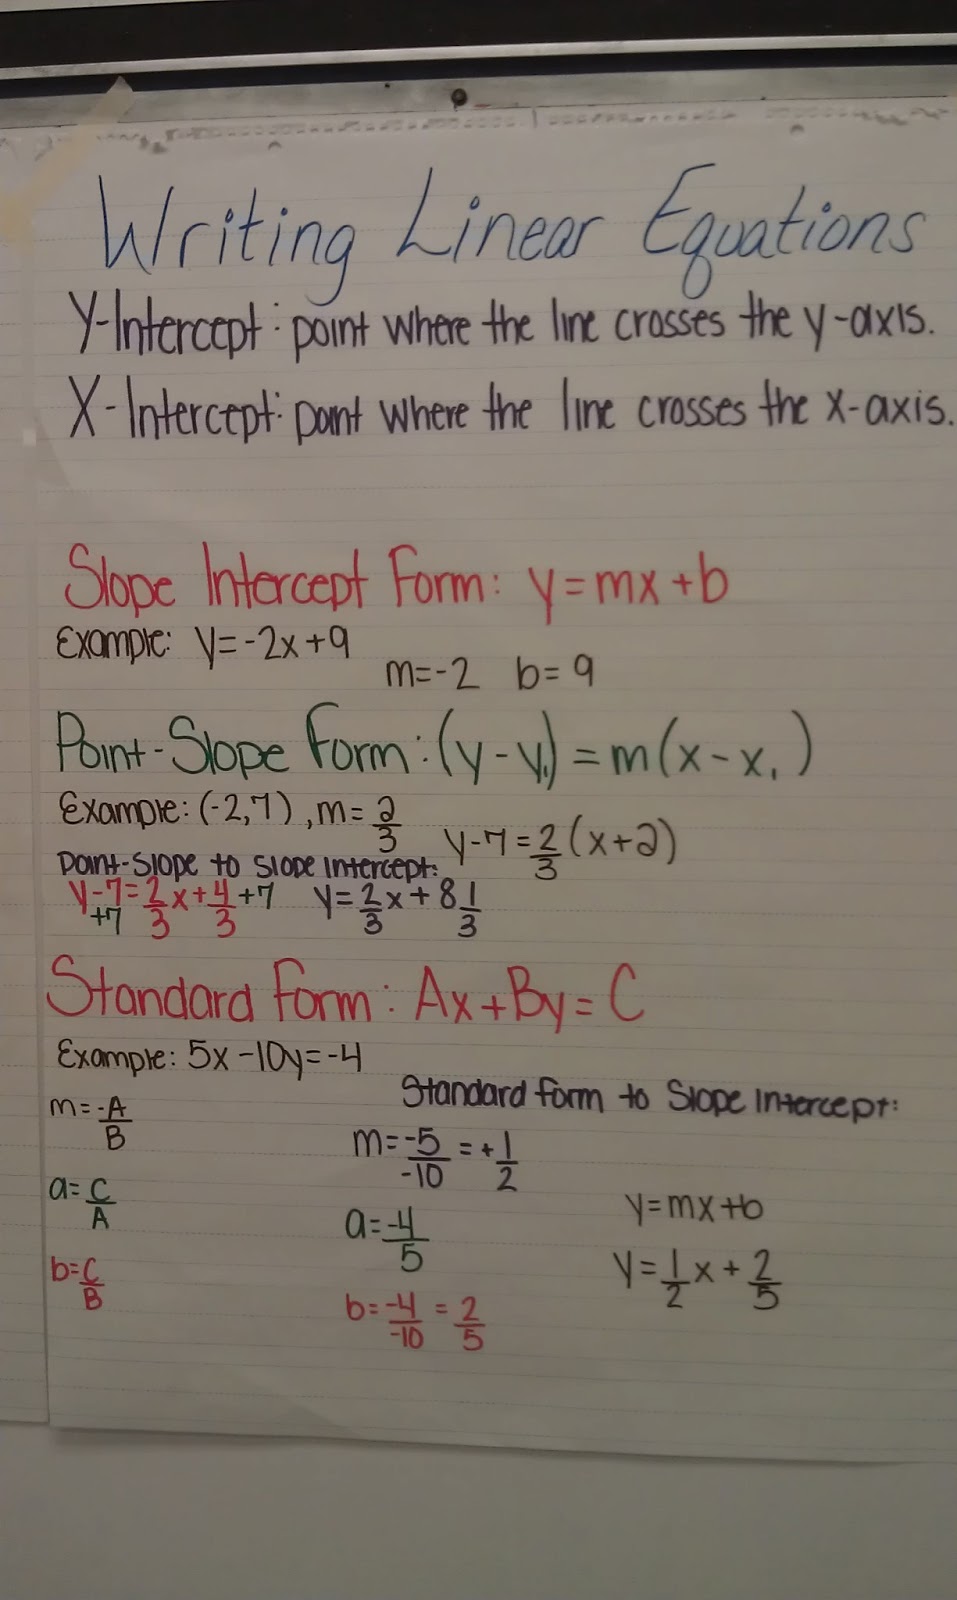 Writing Linear Equations
Y-Intercept: point where the line crosses the y-axis.
X-Intercept: point where the line crosses the x-axis.
Slope Intercept Form: y=mx+b
Example: y=-2x+9
m=-2 b=9
Point-Slope Form: (y-y₁)=m(x-x₁)
Example: (-2,7), m=2/3 y-7=2/3(x+2)
Point-Slope to Slope Intercept:
y-7=2/3x+4/3+7 y=2/3x+8 1/3
+7
Standard Form: Ax+By=C
Example: 5x-10y=-4
Standard form to Slope Intercept:
m=-A/B m=-5/-10=+1/2
a=C/A a=-4/5 y=mx+b
b=C/B b=-4/-10=2/5 y=1/2x+2/5